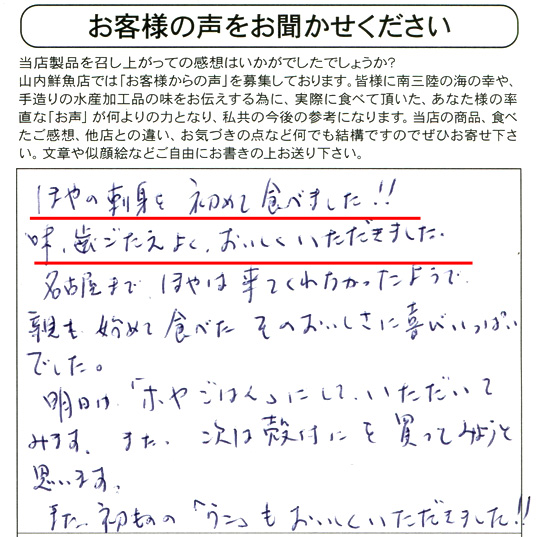 お客様の声をお聞かせください
当店製品を召し上がっての感想はいかがでしたでしょうか?
山内鮮魚店では「お客様からの声」を募集しております。皆様に南三陸の海の幸や、
手造りの水産加工品の味をお伝えする為に、実際に食べて頂いた、あなた様の率
直な「お声」が何よりの力となり、私共の今後の参考になります。当店の商品、食べ
たご感想、他店との違い、お気づきの点など何でも結構ですのでぜひお寄せ下さ
い。文章や似顔絵などご自由にお書きの上お送り下さい。
ほやの刺身を 初めて食べました!!
味、歯ごたえよく、おいしくいただきました。
名古屋まで ほやは来てくれなかったようで
親も 始めて食べた そのおいしさに喜びいっぱい
でした。
明日は「ホヤごはん」にして、いただいて
みます。また、次は殻付に を買ってみようと
思います。
また、初ものの「うに」も おいしくいただきました!!